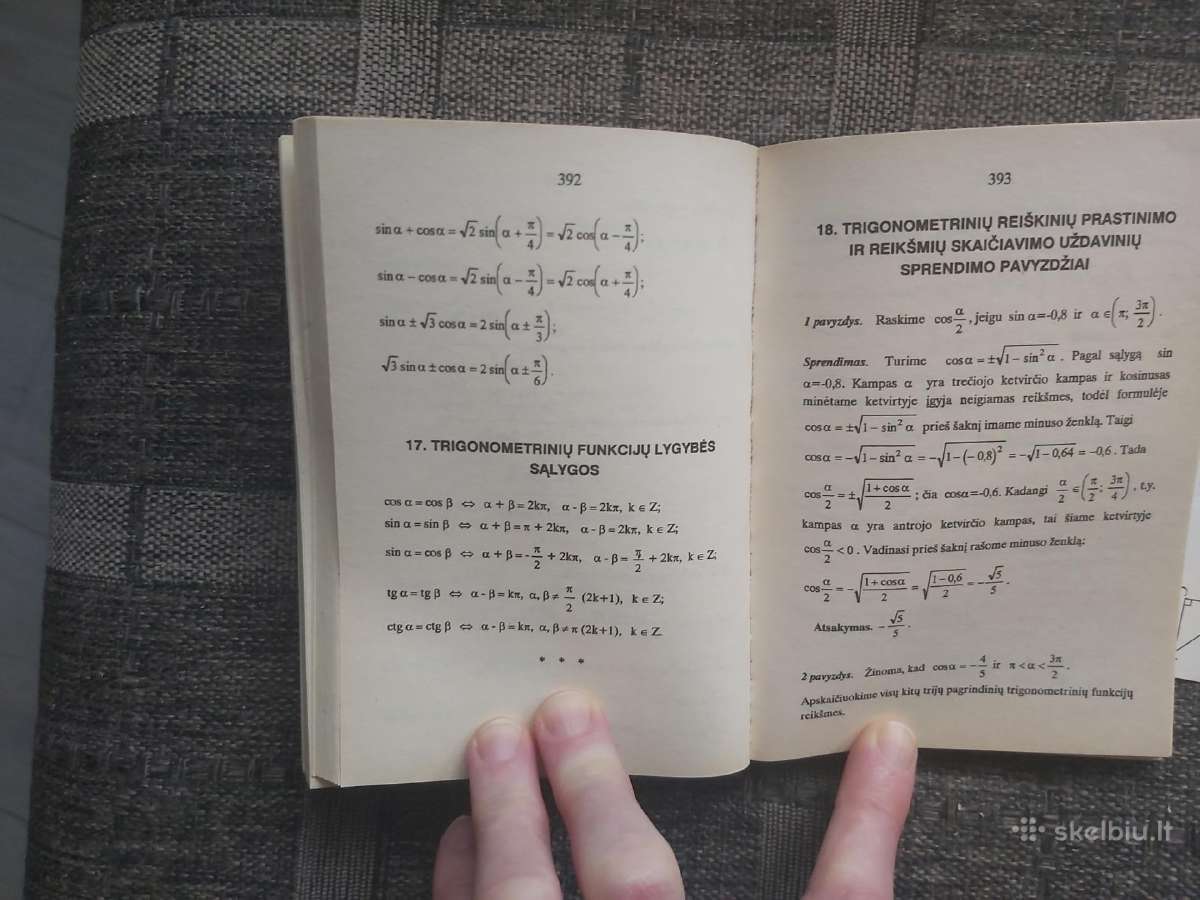 392
sin α + cos α = √2 sin(α + π/4) = √2 cos(α − π/4);
sin α − cos α = √2 sin(α − π/4) = √2 cos(α + π/4);
sin α ± √3 cos α = 2 sin(α ± π/3);
√3 sin α ± cos α = 2 sin(α ± π/6).
17. TRIGONOMETRINIŲ FUNKCIJŲ LYGYBĖS
SĄLYGOS
cos α = cos β ⇔ α + β = 2kπ, α - β = 2kπ, k ∈ Z;
sin α = sin β ⇔ α + β = π + 2kπ, α - β = 2kπ, k ∈ Z;
sin α = cos β ⇔ α + β = -π/2 + 2kπ, α - β = π/2 + 2kπ, k ∈ Z;
tg α = tg β ⇔ α - β = kπ, α, β ≠ π/2 (2k+1), k ∈ Z;
ctg α = ctg β ⇔ α - β = kπ, α, β ≠ π (2k+1), k ∈ Z.
* * *
393
18. TRIGONOMETRINIŲ REIŠKINIŲ PRASTINIMO
IR REIKŠMIŲ SKAIČIAVIMO UŽDAVINIŲ
SPRENDIMO PAVYZDŽIAI
1 pavyzdys. Raskime cos α/2, jeigu sin α=-0,8 ir α ∈ (π; 3π/2).
Sprendimas. Turime cos α = ±√(1 − sin² α). Pagal sąlygą sin
α=-0,8. Kampas α yra trečiojo ketvirčio kampas ir kosinusas
minėtame ketvirtyje įgyja neigiamas reikšmes, todėl formulėje
cos α = ±√(1 − sin² α) prieš šaknį imame minuso ženklą. Taigi
cos α = −√(1 − sin² α) = −√(1 − (−0,8)²) = −√(1 − 0,64) = −0,6. Tada
cos α/2 = ±√((1 + cos α)/2); čia cosα=-0,6. Kadangi α/2 ∈ (π/2; 3π/4), t.y.
kampas α yra antrojo ketvirčio kampas, tai šiame ketvirtyje
cos α/2 < 0. Vadinasi prieš šaknį rašome minuso ženklą:
cos α/2 = −√((1 + cos α)/2) = √((1 − 0,6)/2) = −√5/5.
Atsakymas. −√5/5.
2 pavyzdys. Žinoma, kad cos α = −4/5 ir π < α < 3π/2.
Apskaičiuokime visų kitų trijų pagrindinių trigonometrinių funkcijų
reikšmes.
skelbiu.lt